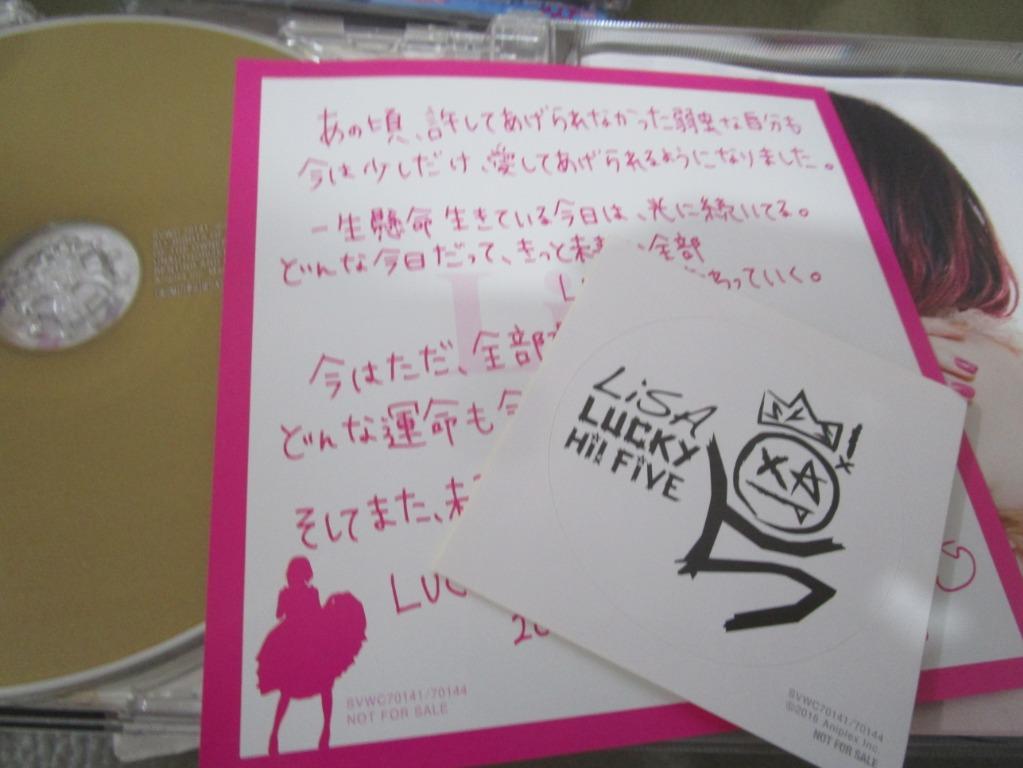 あの頃、許してあげられなかった弱虫な自分も
今は少しだけ、愛してあげられるようになりました。
一生懸命生きている今日は、光に続いてる。
どんな今日だって、きっと未 全部
っていく。
今はただ、全部
どんな運命も
そしてまた、未
SVWC70141/70144
NOT FOR SALE
LiSA
LUCKY
Hi! FiVE
SVWC70141/70144
©2016 Aniplex Inc.
NOT FOR SALE